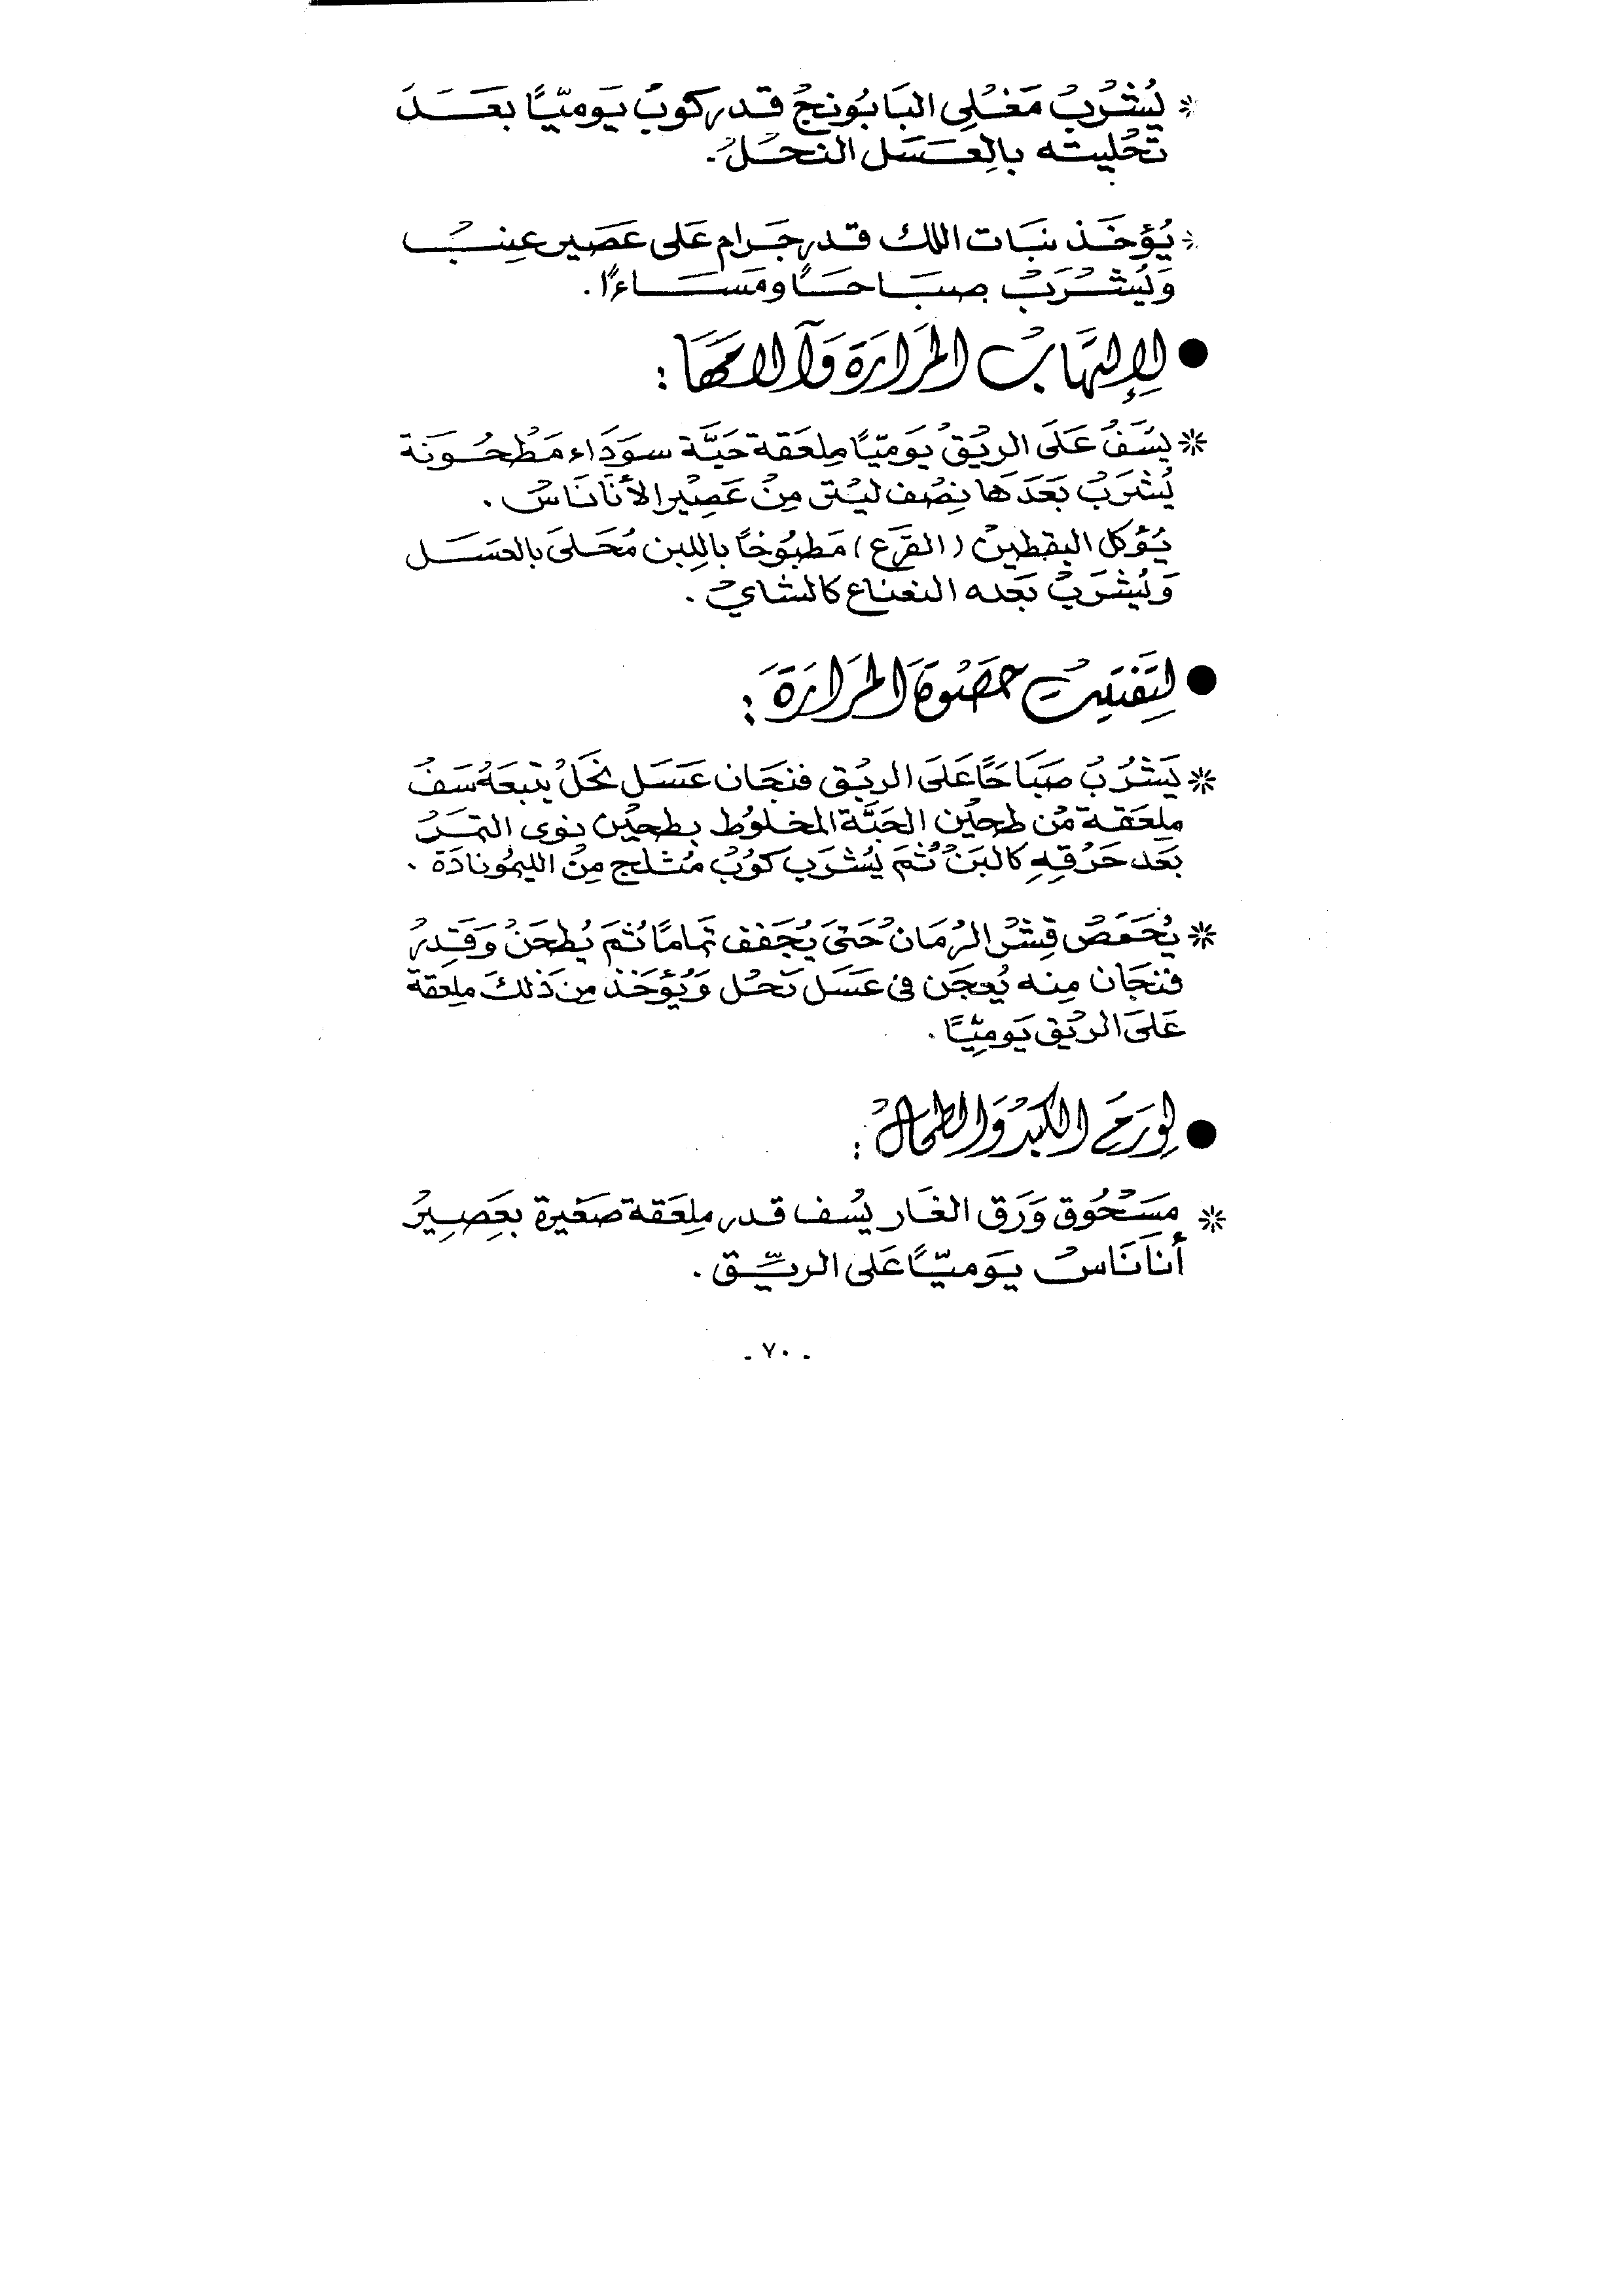 * يُشْرُبُ مَغْلِى البَابُونجُ قدر كوبُ يَوميّاً بعَــدَ
تَحُليته بالِعسَل النحُلُ .
* يُؤخَذ نبَات اللك قدر جَرام عَلى عَصَير عِنبُ
وَيُشْرَبُ صبَاحاً ومَسَاءاً .
● لِإِلتِهَابُ المَرَارَة وَآلامَهَا :
* يسَفُ عَلَى الريُقُ يَوَميّاً مِلعَقة حَبَّة سوَدَاء مَطْحُونة
يُشْرَبُ بَعَدَهَا نِصُف ليُتر مِنُ عَصِيُر الأنَانَاسُ .
يُؤكل اليقطينُ (القرَع) مَطبُوخاً باللبن مُحَلىَ بالعسَل
وَيُشرَبُ بَعده النعناع كالشايُ .
● لِتَفتيتُ حَصْوَة المَرَارَةَ :
* يَشرُبُ صَبَاحَاً عَلَىَ الريُق فنجَان عَسَل نَحَلُ يتبعَهُ سَفُ
مِلعَقة مُن طحيُن الحَبَّة المخلوُط بطحيُن نوى التمَرُ
بَعَد حَرُقِهِ كالبَنُ ثُمَ يُشرَب كوُبُ مُثلج مِنُ الليمُونادَة .
* يُحَمَصُ قِشْرُ الرُمَانُ حَتىَ يُجَفف تمَاماً ثُمَ يُطحَنُ وَقدرُ
فنجَان مِنه يُعجَن فى عَسَل نَحُل وَيُؤخَذ مِن ذَلكَ ملعقة
عَلىَ الريُق يَومِيّاً .
● لِوَرَمَ الكَبدُ وَالطحَالُ :
* مَسَحُوُق وَرَق الغَار يُسف قدر ملِعَقة صَغيرة بعَصِيِرُ
أنانَاسُ يَوميّاً عَلى الريّق .
- ٧٠ -